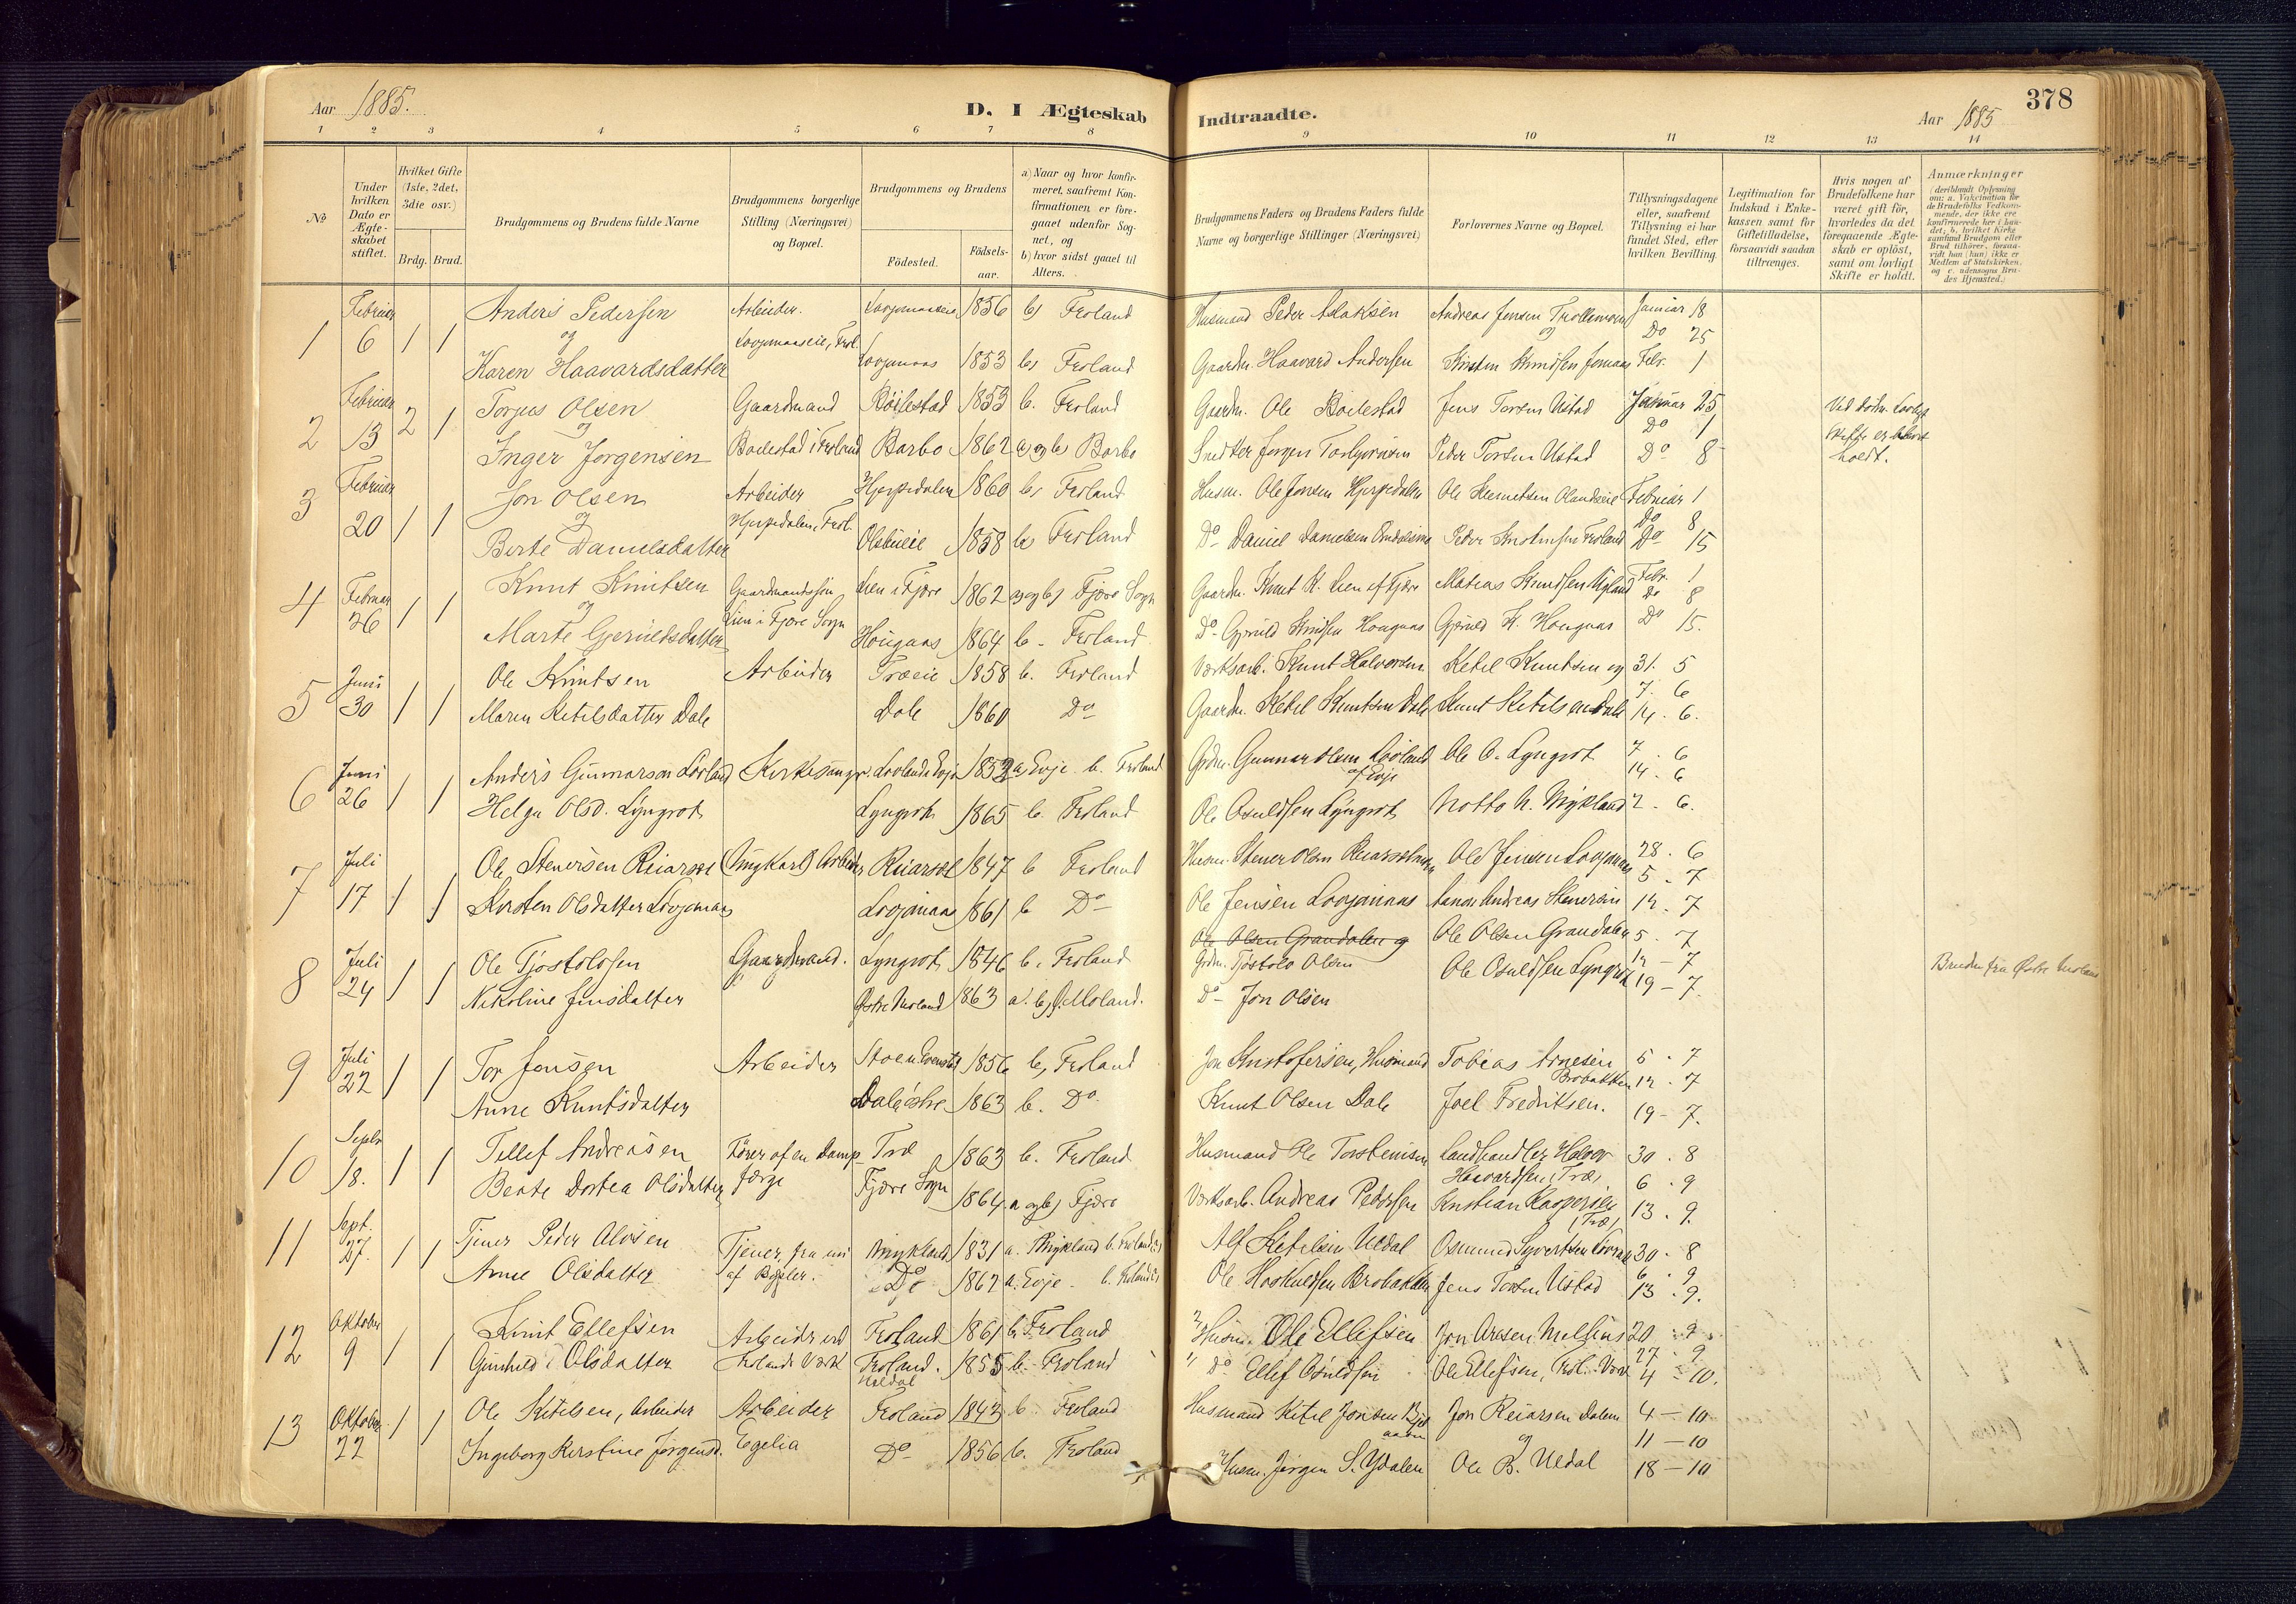 Aar 1885.
D. I Ægteskab
Indtraadte.
Aar 1885
378
1 2 3 4 5 6 7 8 9 10 11 12 13 14
No
Under hvilken Dato er Ægteskabet stiftet.
Hvilket Gifte (1ste, 2det, 3die osv.)
Brdg. Brud.
Brudgommens og Brudens fulde Navne
Brudgommens borgerlige Stilling (Næringsvei) og Bopæl.
Brudgommens og Brudens
Födested.
Födsels-aar.
a) Naar og hvor konfirmeret, saafremt Konfirmationen er foregaaet udenfor Sognet, og
b) hvor sidst gaaet til Alters.
Brudgommens Faders og Brudens Faders fulde Navne og borgerlige Stillinger (Næringsvei)
Forlovernes Navne og Bopæl.
Tillysningsdagene eller, saafremt Tillysning ei har fundet Sted, efter hvilken Bevilling.
Legitimation for Indskud i Enkekassen samt for Giftetilladelse, forsaavidt saadan tiltrænges.
Hvis nogen af Brudefolkene har været gift för, hvorledes da det foregaaende Ægteskab er oplöst, samt om lovligt Skifte er holdt.
Anmærkninger
1 Februar 6 1 1
Anders Pedersen
og
Karen Haavardsdatter
Arbeider.
1856 b) Froland
1853 b) Froland
Husmand Peder Aslaksen
Gaardm. Haavard Andersen
Andreas Jensen
og
Januar 18
Do 25
Febr. 1
2 Februar 13 2 1
Torjus Olsen
og
Inger Jørgensen
Gaardmand
Boilestad i Froland
Boilestad 1853 b. Froland
Barbo 1862 a) og b) Barbo
Gaardm. Ole Boilestad
Snedker Jørgen
Jens Torsen Ustad
Peder Torsen Ustad
Januar 25
Do 1
Do 8
holdt.
3 Februar 20 1 1
Jon Olsen
og
Berte Danielsdatter
Arbeider
Hjerpedalen, Frol.
Hjerpedalen 1860 b) Froland
1858 b) Froland
Husm. Ole Jonsen Hjerpedalen
Do Daniel Danielsen
Februar 1
Do 8
Do 15
4 Februar 26 1 1
Knut Knutsen
og
Marte Gjeruldsdatter
Gaardmandssøn
Lien i Fjære Sogn
Lien i Fjære 1862 a) og b) Fjære Sogn
Hougaas 1864 b - Froland
Gaardm. Knut K. Lien af Fjære
Do Gjeruld Knudsen Hougaas
Gjeruld K. Hougaas
Febr. 1
Do 8
Do 15.
5 Juni 30 1 1
Ole Knutsen
Maren Ketilsdatter Dale
Arbeider
Træeie 1858 b. Froland
Dale 1860 Do
Værksarb. Knut Halvorsen
Gaardm. Ketel Knutsen Dale
Ketel Knutsen og
Knut Ketilsen Dale
31. 5
7. 6
14. 6.
6 Juni 26 1 1
Anders Gunnarson Lovland
Helga Olsd. Lyngrot
Kirkesanger.
1852 a) Evje b. Froland
Lyngrot 1865 b. Froland
Grdm. Gunnar Olsen Lovland
af Evje
Ole Osuldsen Lyngrot
Ole O. Lyngrot
Notto N. Mykland
7. 6
14. 6
2. 6.
7 Juli 17 1 1
Ole Stenersen Reiarsøl
Kirsten Olsdatter Lovjomaas
(Ungkarl) Arbeider
Reiarsøl 1847 b Froland
Lovjomaas 1861 b Do
Husm. Stener Olsen
Ole Jensen Lovjomaas
Ole Jensen Lovjomaas
Andreas Stenersen
28. 6
5. 7
12. 7
8 Juli 24 1 1
Ole Tjøstolvsen
Nikoline Jensdatter
Gaardmand.
Lyngrot 1846 b. Froland
Østre Moland 1863 a. b) Ø. Moland.
Ole Olsen Grandalen og
Grdm. Tjøstolv Olsen
Do Jon Olsen
Ole Olsen Grandalen
Ole Osuldsen Lyngrot
5. 7
12 - 7
19 - 7.
Bruden fra Østre Moland
9 Juli 22 1 1
Tor Jensen
Anne Knutsdatter
Arbeider
1856 b) Froland
Dale østre 1863 b. Do
Jon Kristofersen, Husmand
Knut Olsen Dale
Tobias Arnesen
Brobakken
Joel Fredriksen.
5. 7
12. 7
19 - 7.
10 Septr 18. 1 1
Tellef Andreasen
Berte Dortea Olsdatter
Fører af en Damp-
færge
Træ 1863 b. Froland
Fjære Sogn 1864 a og b) Fjære
Husmand Ole Torstensen
Værksarb. Andreas Pedersen
Landhandler Halvor
Haavardsen, Træ,
Kristian Kaspersen
(Træ)
30. 8
6. 9
13. 9.
11 Sept. 27. 1 1
Tjener Peder Alvsen
Anne Olsdatter
Tjener, fra
af Bygler.
Mykland 1831 a. Mykland b. Froland
Do 1862 a. Evje - b. Froland
Alf Ketelsen Uldal
Ole Hoskuldsen Brobakken
Osmund Syvertsen
Jens Torsen Ustad
30. 8
6. 9
13. 9.
12 Oktober 9 1 1
Knut Ellefsen
Gunhild Olsdatter
Arbeider ved
Frolands Værk
Froland 1861 b. Froland
Froland. 1855 b. - Froland
Husm. Ole Ellefsen
" Do Ellef Osuldsen
Ole Ellefsen, Frol. Værk
20. 9
27. 9
4 - 10.
13 Oktober 22 1 1
Ole Ketelsen, Arbeider
Ingeborg Kirstine Jørgensd.
Arbeider
Egelia
Uldal
Froland 1843 b. Froland
Do 1856 b. Froland
Husmand Ketel Jonsen
Husm. Jørgen S. Ydalen
Jon Reiarsen Dalen
og
Ole B. Uldal
4 - 10
11 - 10
18 - 10